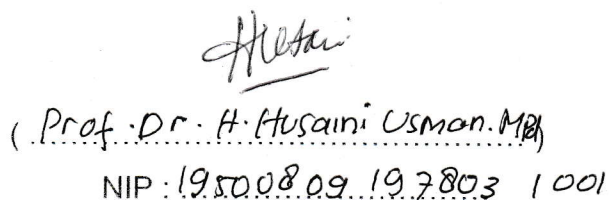 Husaini
( Prof. Dr. H. Husaini Usman. MPd)
NIP : 19500809 197803 1 001